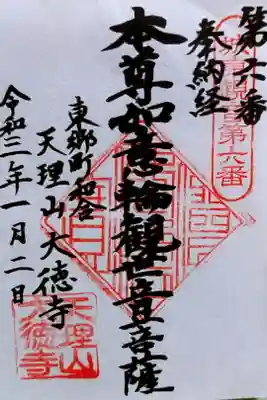 第六番
奉納経
本尊如意輪観世音菩薩
東郷町和合
天理山大徳寺
令和三年一月二日
天理山
大徳寺